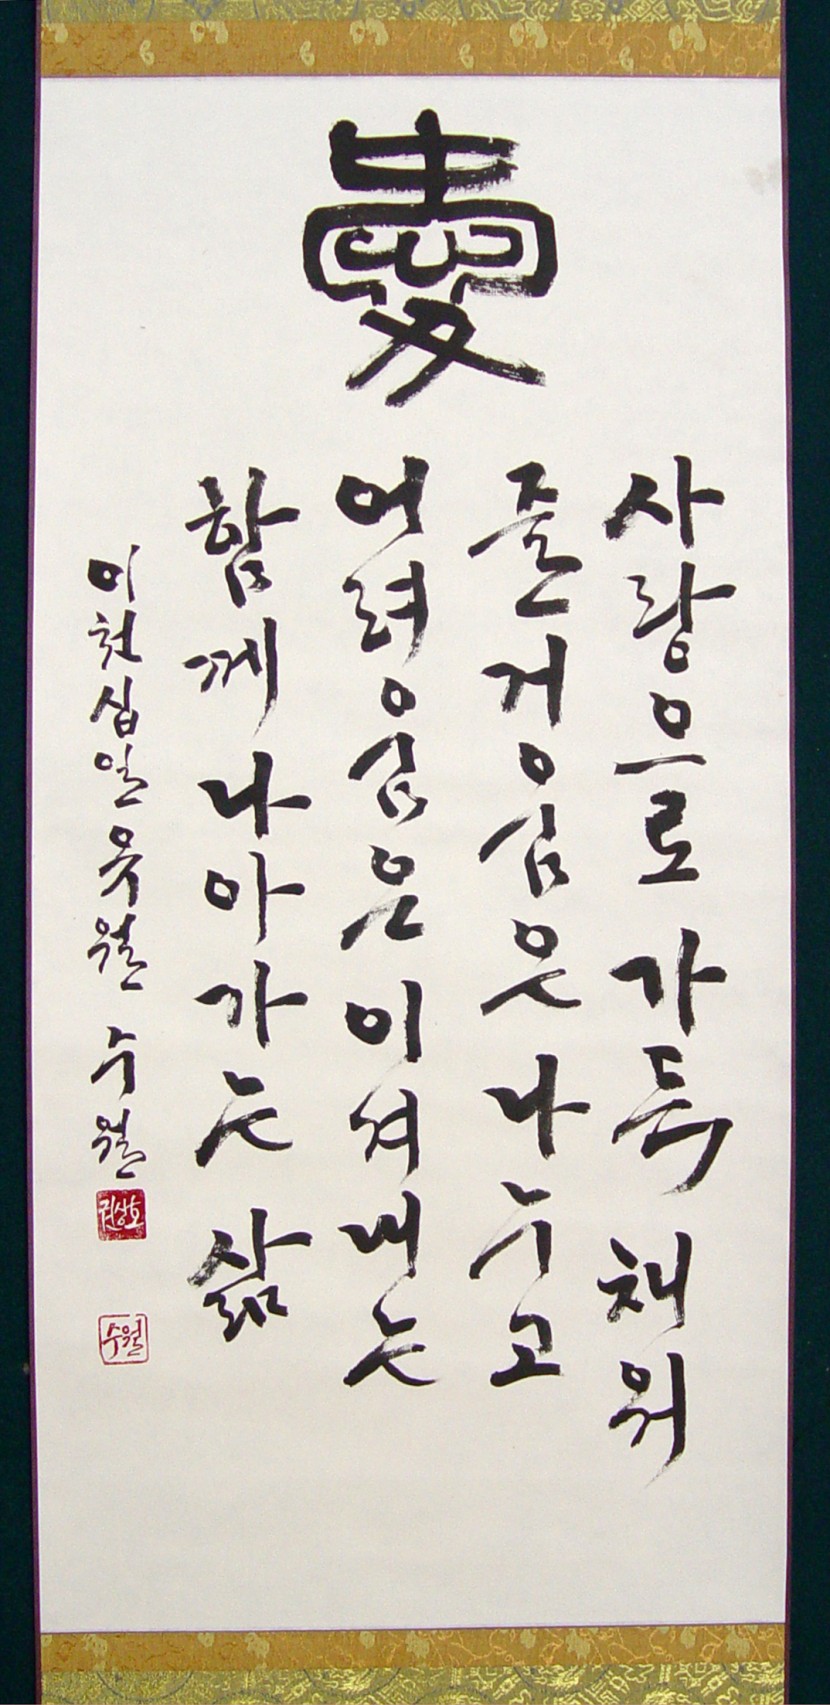 愛
사랑으로 가득 채워
즐거움은 나누고
어려움은 이겨내는
함께 나아가는 삶
이천십일 유월 수월
권상호
수월